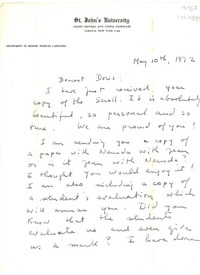 St. John's University
GRAND CENTRAL AND UTOPIA PARKWAYS
JAMAICA, NEW YORK 11439
DEPARTMENT OF MODERN FOREIGN LANGUAGES
May 10th, 1972
Dearest Doris:
I have just received your
copy of the Scroll. It is absolutely
beautiful, so personal and so
true. We are proud of you!
I am sending you a copy of a
paper with Wanda with Jean
or is it Jean with Wanda?
I thought you would enjoy it!
I am also including a copy of
a student, evaluation which
will amuse you. Did you
know that the students
evaluate us and even give
us a mark? I have done